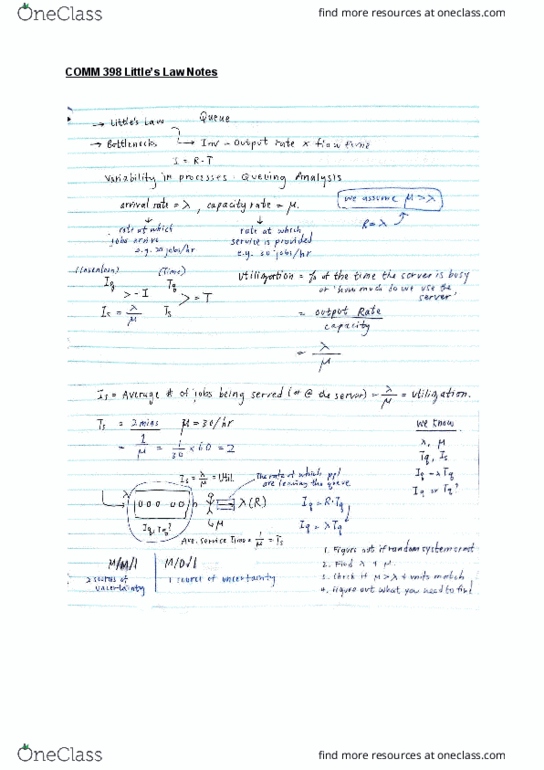 OneClass
find more resources at oneclass.com
COMM 398 Little's Law Notes
→ Little's Law Queue
→ Bottlenecks → Inv = Output rate × flow time
I = R·T
Variability in processes - Queuing Analysis
arrival rate = λ, capacity rate = μ.
we assume μ > λ
R = λ
rate at which jobs arrive
e.g. 20 jobs/hr
rate at which service is provided
e.g. 30 jobs/hr
(Inventory) (Time)
Iq Tq
> = I > = T
Is = λ/μ Ts
Utilization = % of the time the server is busy
or 'how much do we use the server'
= output Rate / capacity
= λ/μ
Is = Average # of jobs being served (or @ the server) = λ/μ = Utilization.
Ts = 2 mins μ = 30/hr
= 1/μ = 1/30 × 60 = 2
we know
λ, μ
Tq, Is
Iq = λ Tq
Iq or Tq?
Is = λ/μ = Util.
The rate at which ppl are leaving the queue
λ
λ(R)
Iq = R·Tq
Iq = λTq
Iq, Tq?
μ
Ave. Service Time = 1/μ = Ts
M/M/1
2 sources of uncertainty
M/D/1
1 source of uncertainty
1. Figure out if random system or not
2. Find λ + μ.
3. Check if μ > λ + units match
4. Figure out what you need to find
OneClass
find more resources at oneclass.com